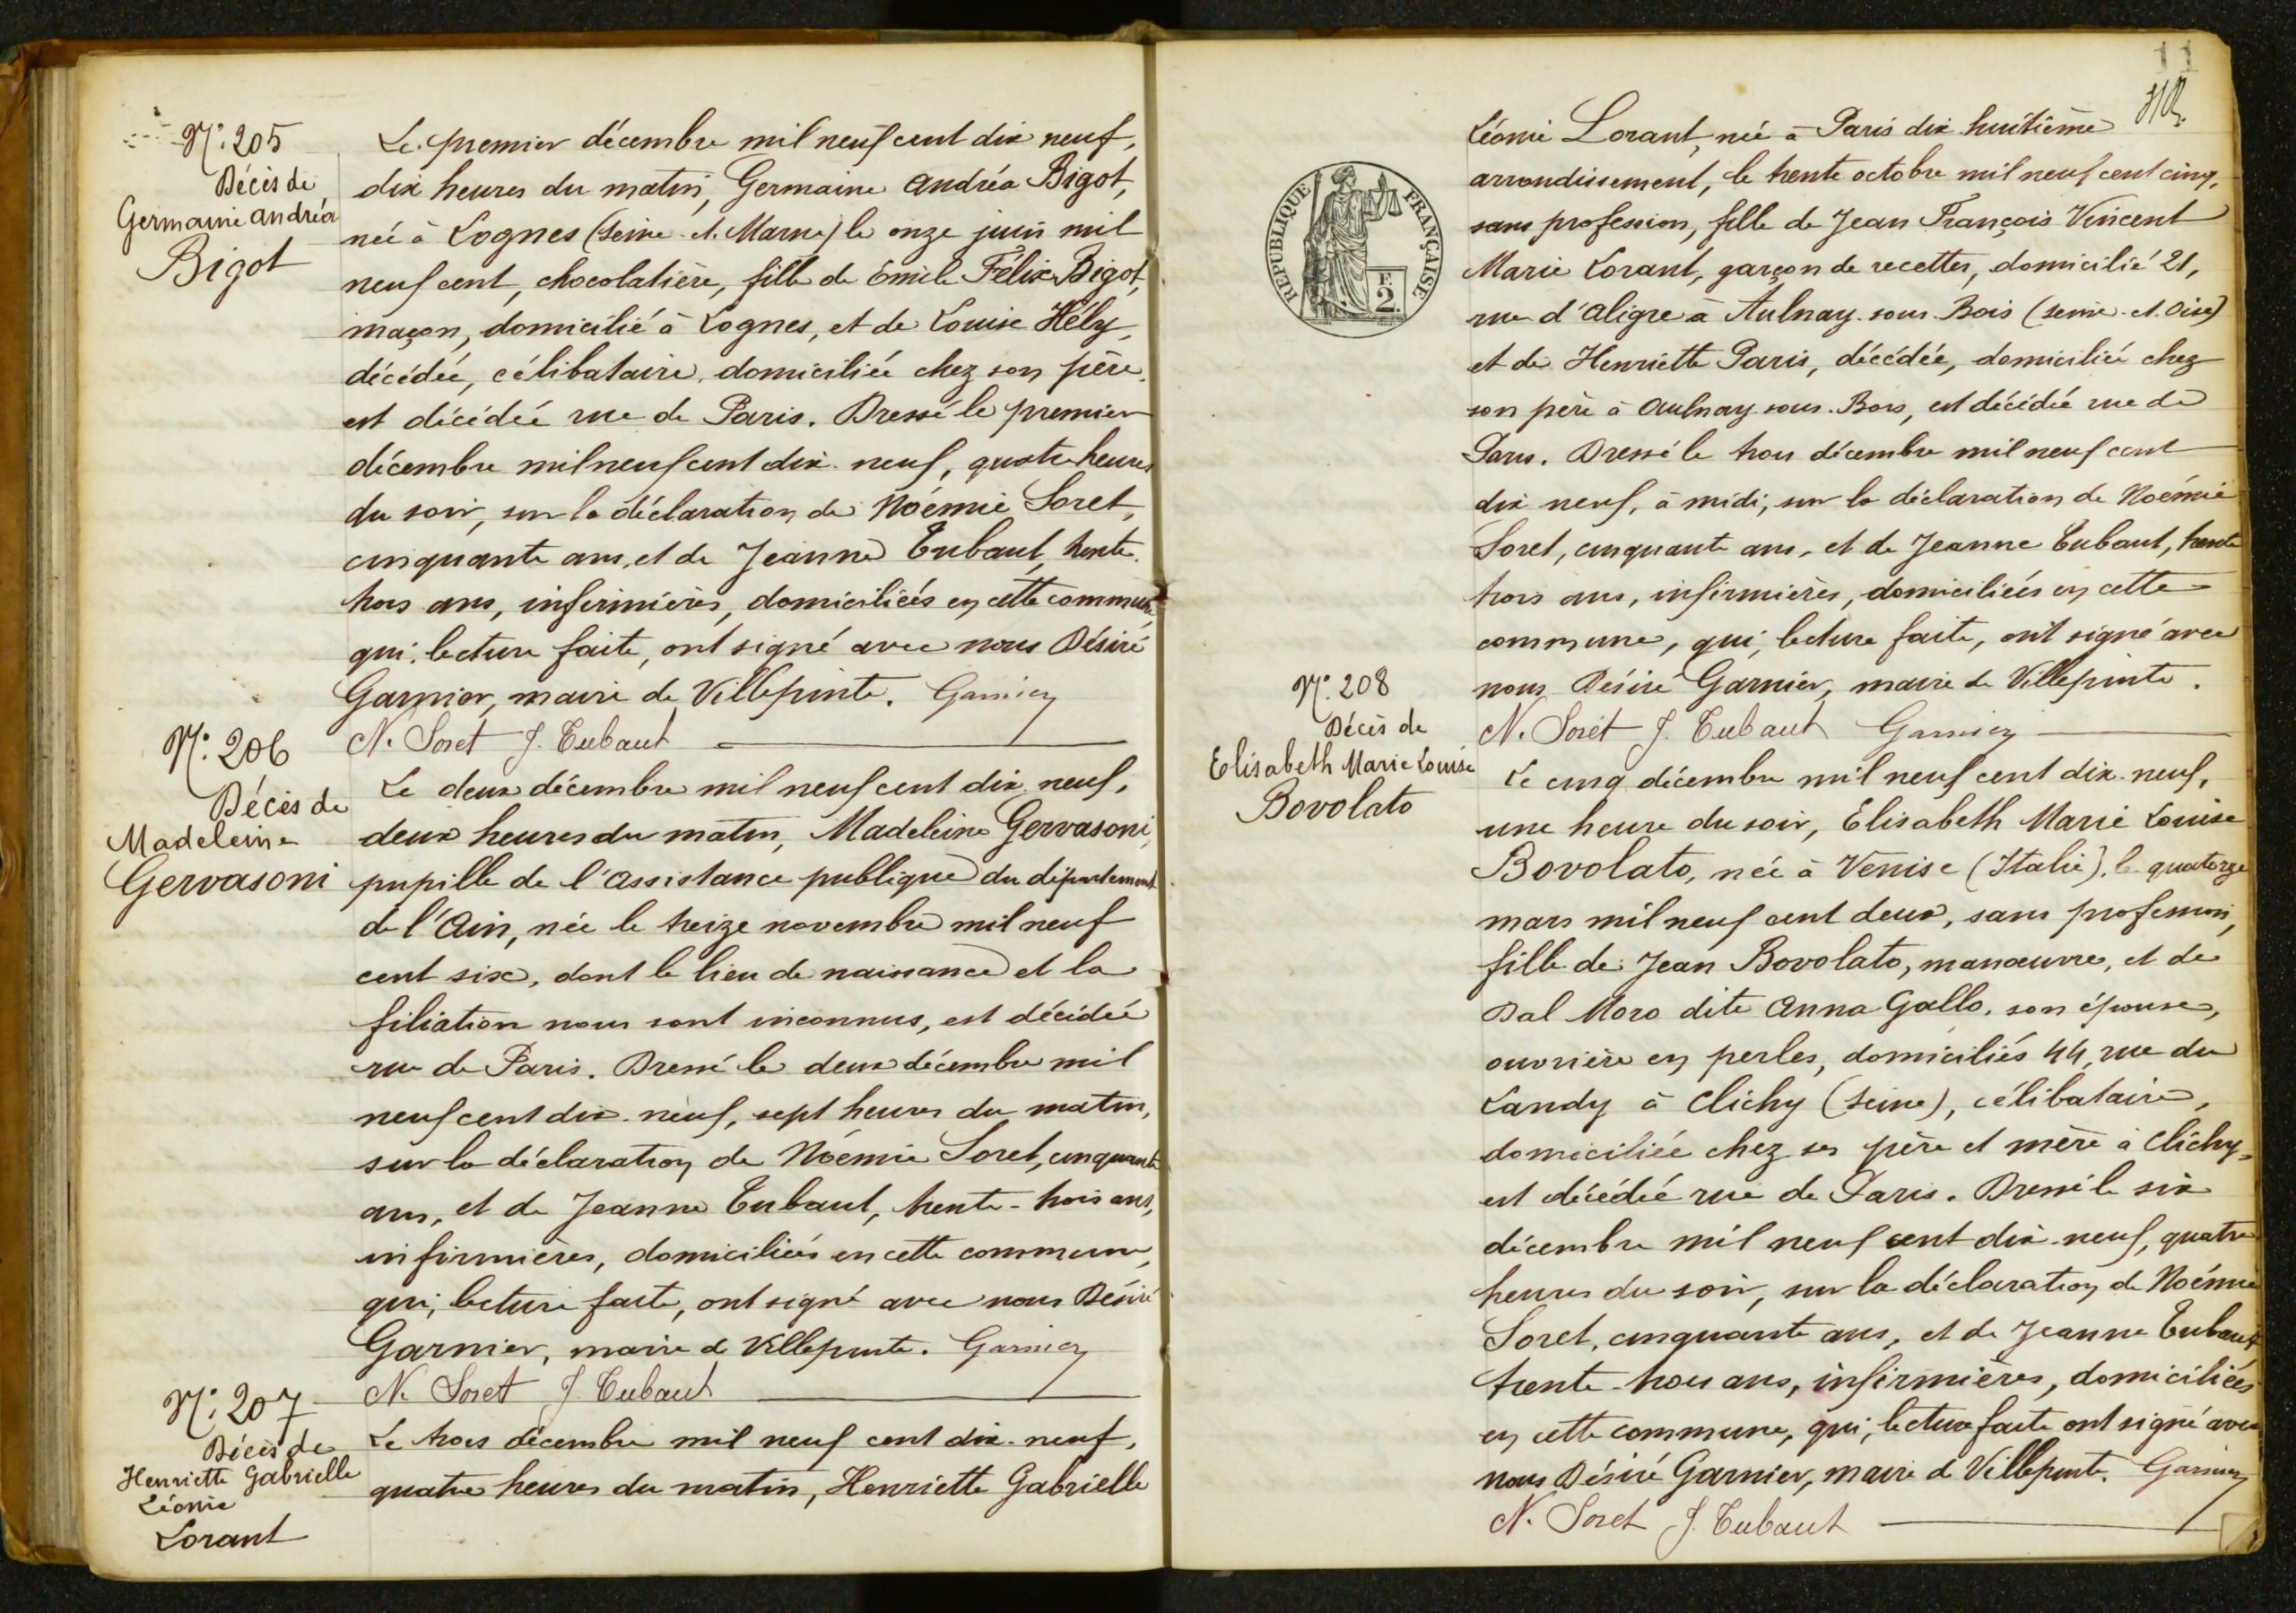 N° 205
Décès de
Germaine Andréa
Bigot
Le premier décembre mil neuf cent dix neuf,
dix heures du matin, Germaine Andréa Bigot,
née à Lognes (Seine-et-Marne) le onze juin mil
neuf cent, chocolatière, fille de Emile Félix Bigot,
maçon, domicilié à Lognes, et de Louise Hély,
décédée, célibataire, domiciliée chez son père,
est décédée rue de Paris. Dressé le premier
décembre mil neuf cent dix-neuf, quatre heures
du soir, sur la déclaration de Noémie Soret,
cinquante ans, et de Jeanne Tubaut, trente-
trois ans, infirmières, domiciliées en cette commune,
qui, lecture faite, ont signé avec nous Désiré
Garnier, maire de Villepinte. Garnier
N. Soret J. Tubaut
N° 206
Décès de
Madeleine
Gervasoni
Le deux décembre mil neuf cent dix neuf,
deux heures du matin, Madeleine Gervasoni,
pupille de l'Assistance publique du département
de l'Ain, née le treize novembre mil neuf
cent six, dont le lieu de naissance et la
filiation nous sont inconnus, est décédée
rue de Paris. Dressé le deux décembre mil
neuf cent dix-neuf, sept heures du matin,
sur la déclaration de Noémie Soret, cinquante
ans, et de Jeanne Tubaut, trente-trois ans,
infirmières, domiciliées en cette commune,
qui, lecture faite, ont signé avec nous Désiré
Garnier, maire de Villepinte. Garnier
N. Soret J. Tubaut
N° 207
Décès de
Henriette Gabrielle
Léonie
Lorant
Le trois décembre mil neuf cent dix-neuf,
quatre heures du matin, Henriette Gabrielle
11
RÉPUBLIQUE FRANÇAISE
F.
2.
Léonie Lorant, née à Paris dix huitième
arrondissement, le trente octobre mil neuf cent cinq,
sans profession, fille de Jean François Vincent
Marie Lorant, garçon de recettes, domicilié 21,
rue d'Aligre à Aulnay-sous-Bois (Seine-et-Oise)
et de Henriette Paris, décédée, domiciliée chez
son père à Aulnay-sous-Bois, est décédée rue de
Paris. Dressé le trois décembre mil neuf cent
dix neuf, à midi, sur la déclaration de Noémie
Soret, cinquante ans, et de Jeanne Tubaut, trente
trois ans, infirmières, domiciliées en cette
commune, qui, lecture faite, ont signé avec
nous Désiré Garnier, maire de Villepinte.
N. Soret J. Tubaut Garnier
N° 208
Décès de
Elisabeth Marie Louise
Bovolato
Le cinq décembre mil neuf cent dix-neuf,
une heure du soir, Elisabeth Marie Louise
Bovolato, née à Venise (Italie), le quatorze
mars mil neuf cent deux, sans profession,
fille de Jean Bovolato, manœuvre, et de
Dal Moro dite Anna Gallo, son épouse,
ouvrière en perles, domiciliés 44, rue du
Landy à Clichy (Seine), célibataire,
domiciliée chez ses père et mère à Clichy,
est décédée rue de Paris. Dressé le six
décembre mil neuf cent dix-neuf, quatre
heures du soir, sur la déclaration de Noémie
Soret, cinquante ans, et de Jeanne Tubaut
trente-trois ans, infirmières, domiciliées
en cette commune, qui, lecture faite ont signé avec
nous Désiré Garnier, maire de Villepinte. Garnier
N. Soret J. Tubaut